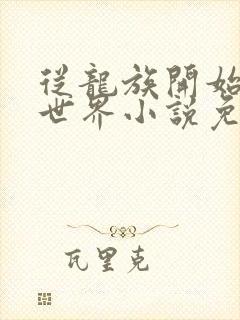 從龍族開始
世界小說免
瓦里克